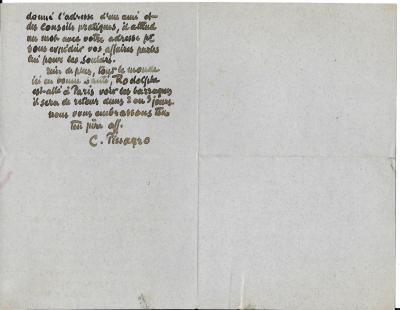 donné l'adresse d'un ami et
des conseils pratiques, il attend
un mot avec votre adresse pr
vous expédier vos affaires
lui pour les
rien de plus, tout le monde
ici en bonne santé, Rodolphe
est allé à Paris voir les barraques
il sera de retour dans 2 ou 3 jours.
nous vous embrassons tous
ton père aff.
C. Pissarro